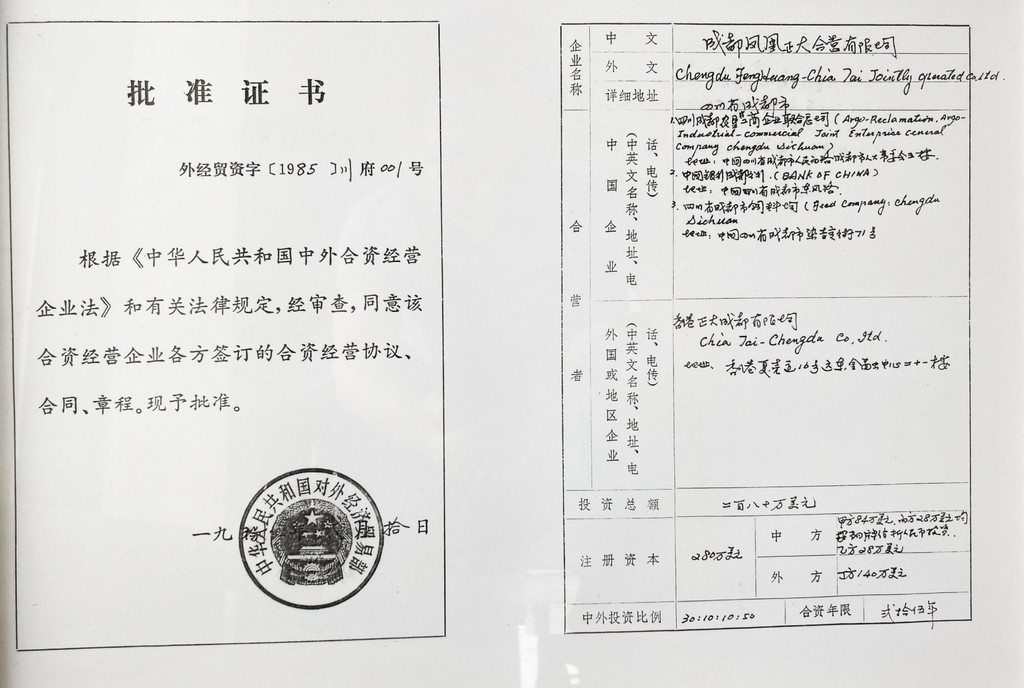 批准证书
外经贸资字〔1985〕川府001号
根据《中华人民共和国中外合资经营
企业法》和有关法律规定,经审查,同意该
合资经营企业各方签订的合资经营协议、
合同、章程。现予批准。
中华人民共和国对外经济贸易部
一九 年 月拾日
企业名称
中文
成都凤凰正大合营有限公司
外文
Chengdu FengHuang-Chia Tai Jointly operated Co., ltd.
详细地址
四川省成都市
合营者
中国企业
(中英文名称、地址、电话、电传)
1.四川成都农垦工商企业联合总公司(Argo-Reclamation, Argo-
Industrial-commercial Joint Enterprise ceneral
Company chengdu Sichuan)
地址:中国四川省成都市人民 路成都市人大常委会五楼.
2.中国银行成都分行.(BANK OF CHINA)
地址:中国四川省成都市东风路.
3.四川省成都市饲料公司(Feed Company: chengdu
Sichuan
地址:中国四川省成都市 街71号
外国或地区企业
(中英文名称、地址、电话、电传)
香港正大成都有限公司
Chia Tai-Chengdu Co, ltd.
地址、香港夏悫道18号 东 中心二十一楼
投资总额
二百八十万美元
注册资本
280万美元
中方
甲方84万美元,丙方28万美元均
按 折人民币投资.
乙方28万美元
外方
丁方140万美元
中外投资比例
30:10:10:50
合资年限
贰拾伍年